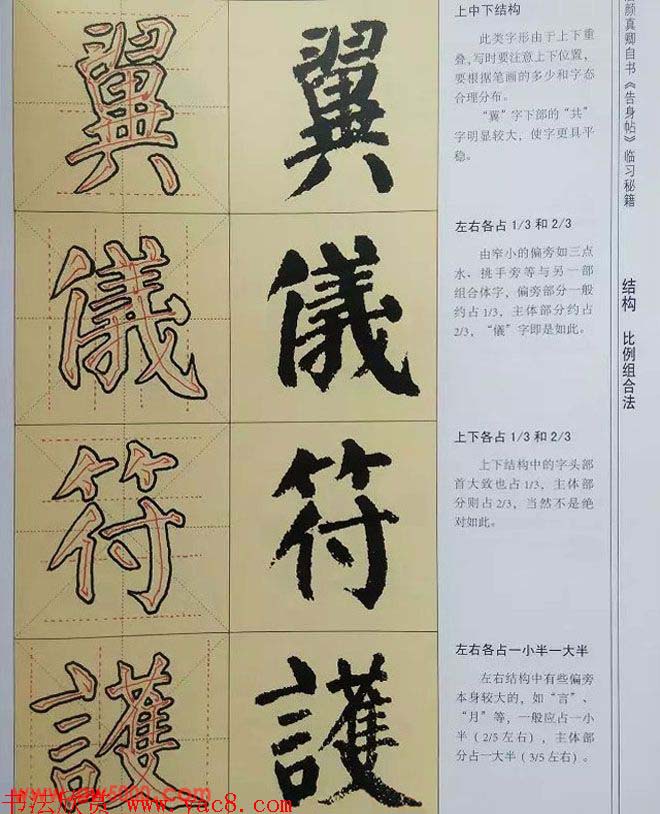 翼
翼
上中下结构
此类字形由于上下重
叠,写时要注意上下位置,
要根据笔画的多少和字态
合理分布。
“翼”字下部的“共”
字明显较大，使字更具平
稳。
儀
儀
左右各占 1/3 和 2/3
由窄小的偏旁如三点
水、挑手旁等与另一部
组合体字，偏旁部分一般
约占 1/3，主体部分约占
2/3，“儀”字即是如此。
符
符
上下各占 1/3 和 2/3
上下结构中的字头部
首大致也占 1/3，主体部
分则占 2/3，当然不是绝
对如此。
護
護
左右各占一小半一大半
左右结构中有些偏旁
本身较大的，如“言”、
“月”等，一般应占一小
半（2/5 左右），主体部
分占一大半（3/5 左右）。
颜真卿自书《告身帖》临习秘籍
结构 比例组合法
书法欣赏 www.yac8.com